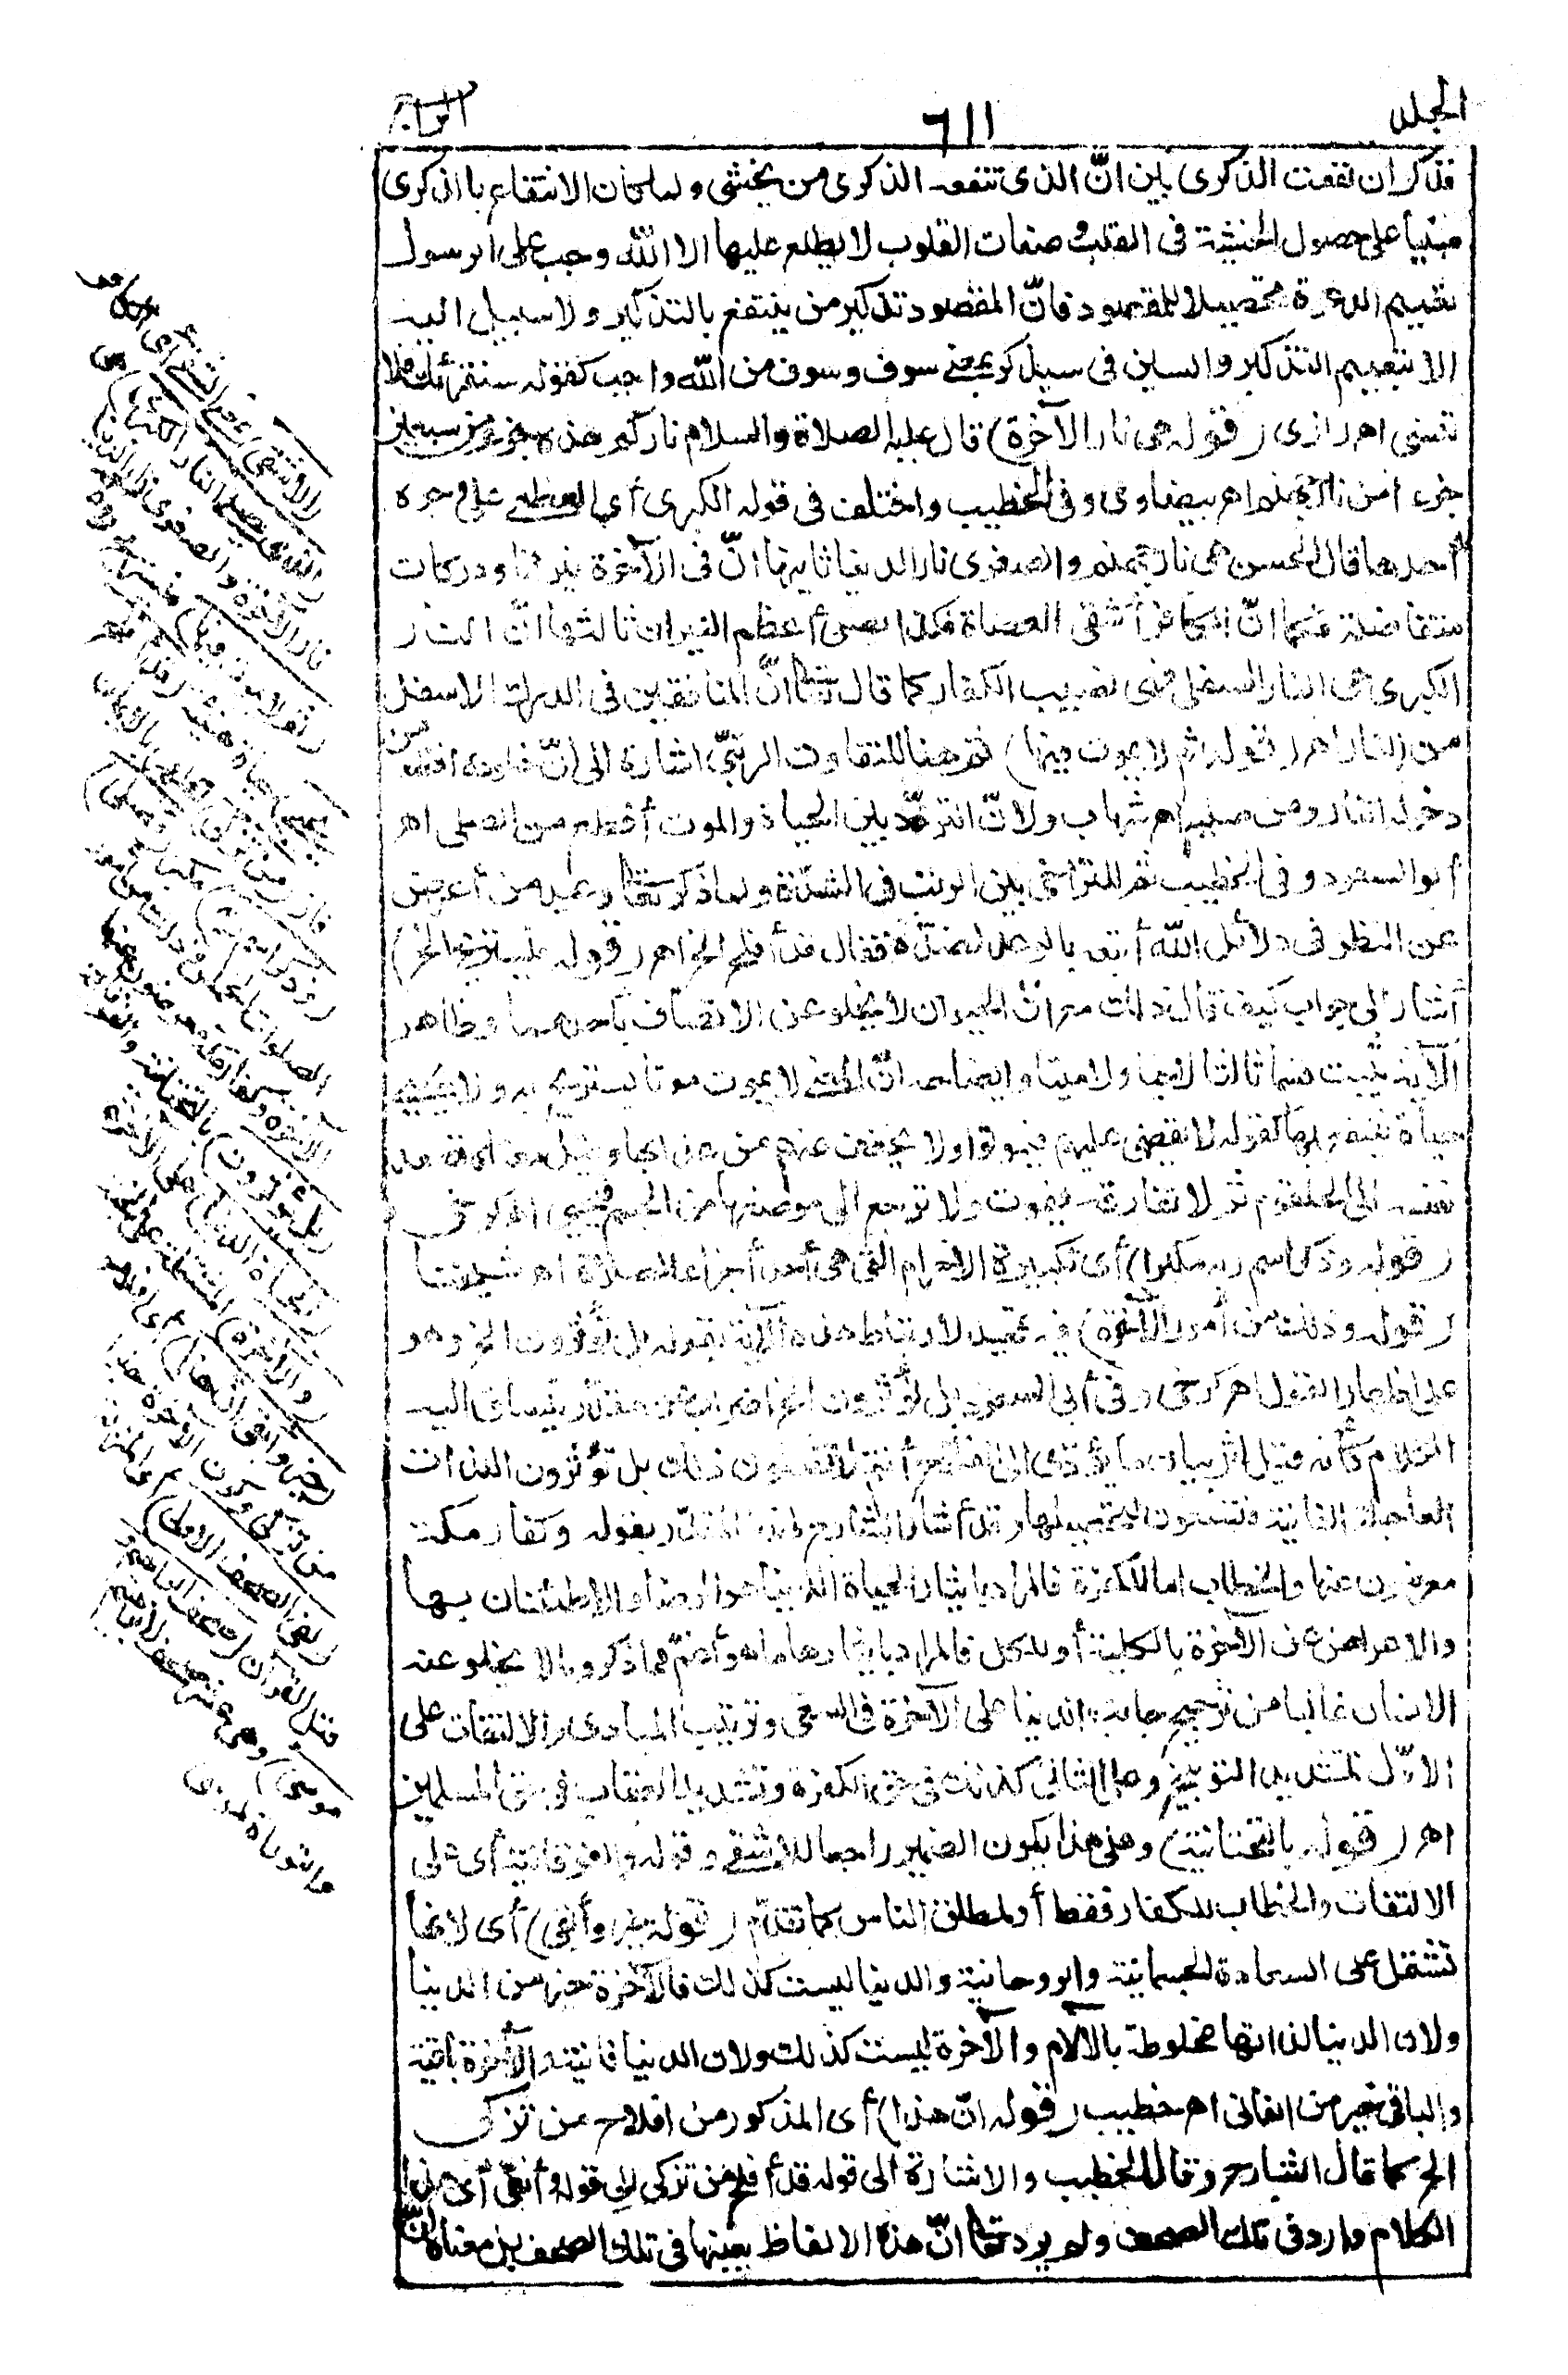 المجلد
٦١١
الرابع
فذكر ان نفعت الذكرى بين انّ الذى تنفعه الذكرى من يخشى ولما كان الانتفاع بالذكرى
مبنيا على حصول الخشية فى القلب وصفات القلوب لا يطلع عليها الا الله وجب على الرسول
تعميم الدعوة تحصيلا للمقصود فانّ المقصود تذكير من ينتفع بالتذكير ولا سبيل اليه
الا بتعميم التذكير والسين فى سيذكر بمعنى سوف وسوف من الله واجب كقوله سنقرئك فلا
تنسى اهـ رازى (قوله هى نار الآخرة) قال عليه الصلاة والسلام ناركم هذه جزء من سبعين
جزء امن نار جهنم اهـ بيضاوى وفى الخطيب واختلف فى قوله الكبرى أى العظمى على وجوه
أحدها قال الحسن هى نار جهنم والصغرى نار الدنيا ثانيها انّ فى الآخرة نيرانا ودركات
متفاضلة فكما انّ الكافر أشقى العصاة فكذا يصلى أعظم النيران ثالثها انّ النار
الكبرى هى النار السفلى فهى نصيب الكفار كما قال تعالى انّ المنافقين فى الدرك الاسفل
من النار اهـ (قوله ثم لا يموت فيها) ثم هنا للتفاوت الرتبى اشارة الى انّ خلوده أفظع من
دخوله النار ومن صليه اهـ شهاب ولانّ التردّد بين الحياة والموت أفظع من الصلى اهـ
أبو السعود وفى الخطيب ثم للتراخى بين الرتب فى الشدّة ولما ذكر تعالى وعيد من أعرض
عن النظر فى دلائل الله أتبعه بالوعد لضدّه فقال قد أفلح الخ اهـ (قوله حياة هنيئة الخ)
أشار الى جواب كيف قال ذلك مع انّ الحيوان لا يخلو عن الاتصاف بأحدهما وظاهر
الآية يثبت قسما ثالثا لا حيا ولا ميتا وايضاحه انّ المعنى لا يموت موتا يستريح به ولا يحيى
حياة ينتفع بها كقوله لا يقضى عليهم فيموتوا ولا يخفف عنهم من عذابها وقيل معناه تصعد
نفسه الى الحلقوم ثم لا تفارقه فيموت ولا ترجع الى موضعها من الجسم فيحيى اهـ كرخى
(قوله وذكر اسم ربه مكبرا) أى تكبيرة الاحرام التى هى أحد أجزاء الصلاة اهـ شيخنا
(قوله وذلك من أمور الآخرة) فيه تمهيد لارتباط هذه الآية بقوله بل تؤثرون الخ وهو
على اظهار القول اهـ كرخى وفى أبى السعود بل تؤثرون الخ اضراب عن مقدّر ينساق اليه
الكلام كأنه قيل اثر بيان ما يؤدّى الى الفلاح أنتم لا تفعلون ذلك بل تؤثرون اللذات
العاجلة الفانية فتسعون لتحصيلها وقد أشار الشارح لهذا المقدّر بقوله وكفار مكة
معرضون عنها والخطاب اما للكفرة فالمراد بايثار الحياة الدنيا هو الرضا والاطمئنان بها
والاعراض عن الآخرة بالكلية أو للكل فالمراد بايثارها ما هو أعمّ مما ذكر ومالا يخلو عنه
الانسان غالبا من ترجيح جانب الدنيا على الآخرة فى السعى وترتيب المبادى والالتفات على
الاوّل لتشديد التوبيخ وعلى الثانى كذلك فى حق الكفرة وتشديد العتاب فى حق المسلمين
اهـ (قوله بالتحتانية) وعلى هذا يكون الضمير راجعا للاشقى وقوله والفوقانية أى على
الالتفات والخطاب للكفار فقط أو لمطلق الناس كما تقدّم (قوله خير وأبقى) أى لانها
تشتمل على السعادة الجسمانية والروحانية والدنيا ليست كذلك فالآخرة خير من الدنيا
ولان الدنيا لذاتها مخلوطة بالآلام والآخرة ليست كذلك ولان الدنيا فانية والآخرة باقية
والباقى خير من الفانى اهـ خطيب (قوله انّ هذا) أى المذكور من افلاح من تزكى
الخ كما قال الشارح وقال الخطيب والاشارة الى قوله قد أفلح من تزكى الى قوله وأبقى أى هذا
الكلام وارد فى تلك الصحف ولم يرد تعالى انّ هذه الالفاظ بعينها فى تلك الصحف بل معناه انّ
(الاشقى) بمعنى الشقى أى الكافر
(الذى يصلى النار الكبرى) هى
نار الآخرة والصغرى نار الدنيا
(ثم لا يموت فيها) فيستريح (ولا
يحيى) حياة هنيئة (قد أفلح)
فاز (من تزكى) تطهر بالايمان
(وذكر اسم ربه) مكبرا (فصلى)
الصلوات الخمس وذلك من أمور
الآخرة وكفار مكة معرضون عنها
(بل تؤثرون) بالتحتانية والفوقانية
(الحياة الدنيا) على الآخرة
(والآخرة) المشتملة على الجنة
(خير وأبقى انّ هذا) أى افلاح
من تزكى وكون الآخرة خيرا
(لفى الصحف الاولى) أى المنزلة
قبل القرآن (صحف ابراهيم و
موسى) وهى عشر صحف لابراهيم
والتوراة لموسى